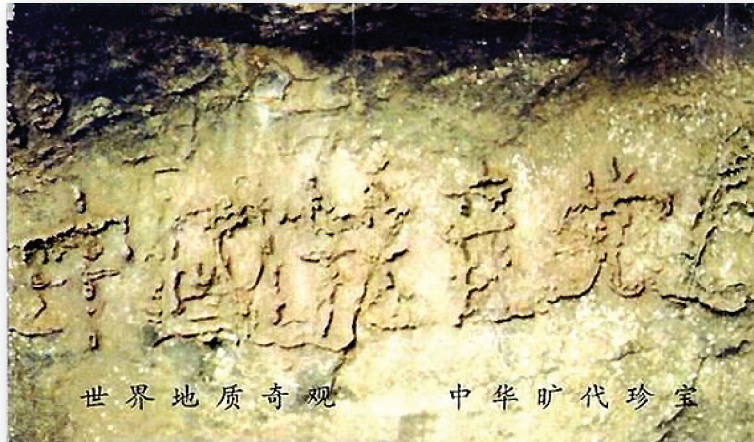 中國共產党
世界地质奇观 中华旷代珍宝